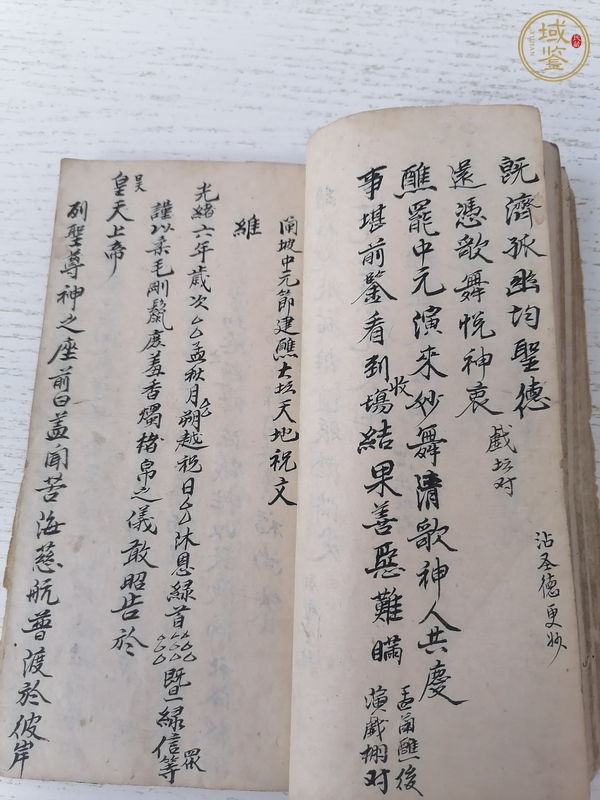 既濟孤幽均聖德
還憑歌舞悅神衷
戲坛对
沾圣德更妙
醮罷中元演來妙舞清歌神人共慶
事堪前鑒看到收塲結果善惡難瞞
孟甬醮後
演戲棚对
坡中元節建醮大坛天地祝文
維
光緒六年歲次厶厶孟秋月厶朔越祝日厶厶沐恩緣首厶厶厶厶厶厶暨緣信等
謹以柔毛剛鬣庶羞香燭楮帛之儀敢昭告於
昊
皇天上帝
列聖尊神之座前曰盖闻苦海慈航普渡於彼岸
域鉴